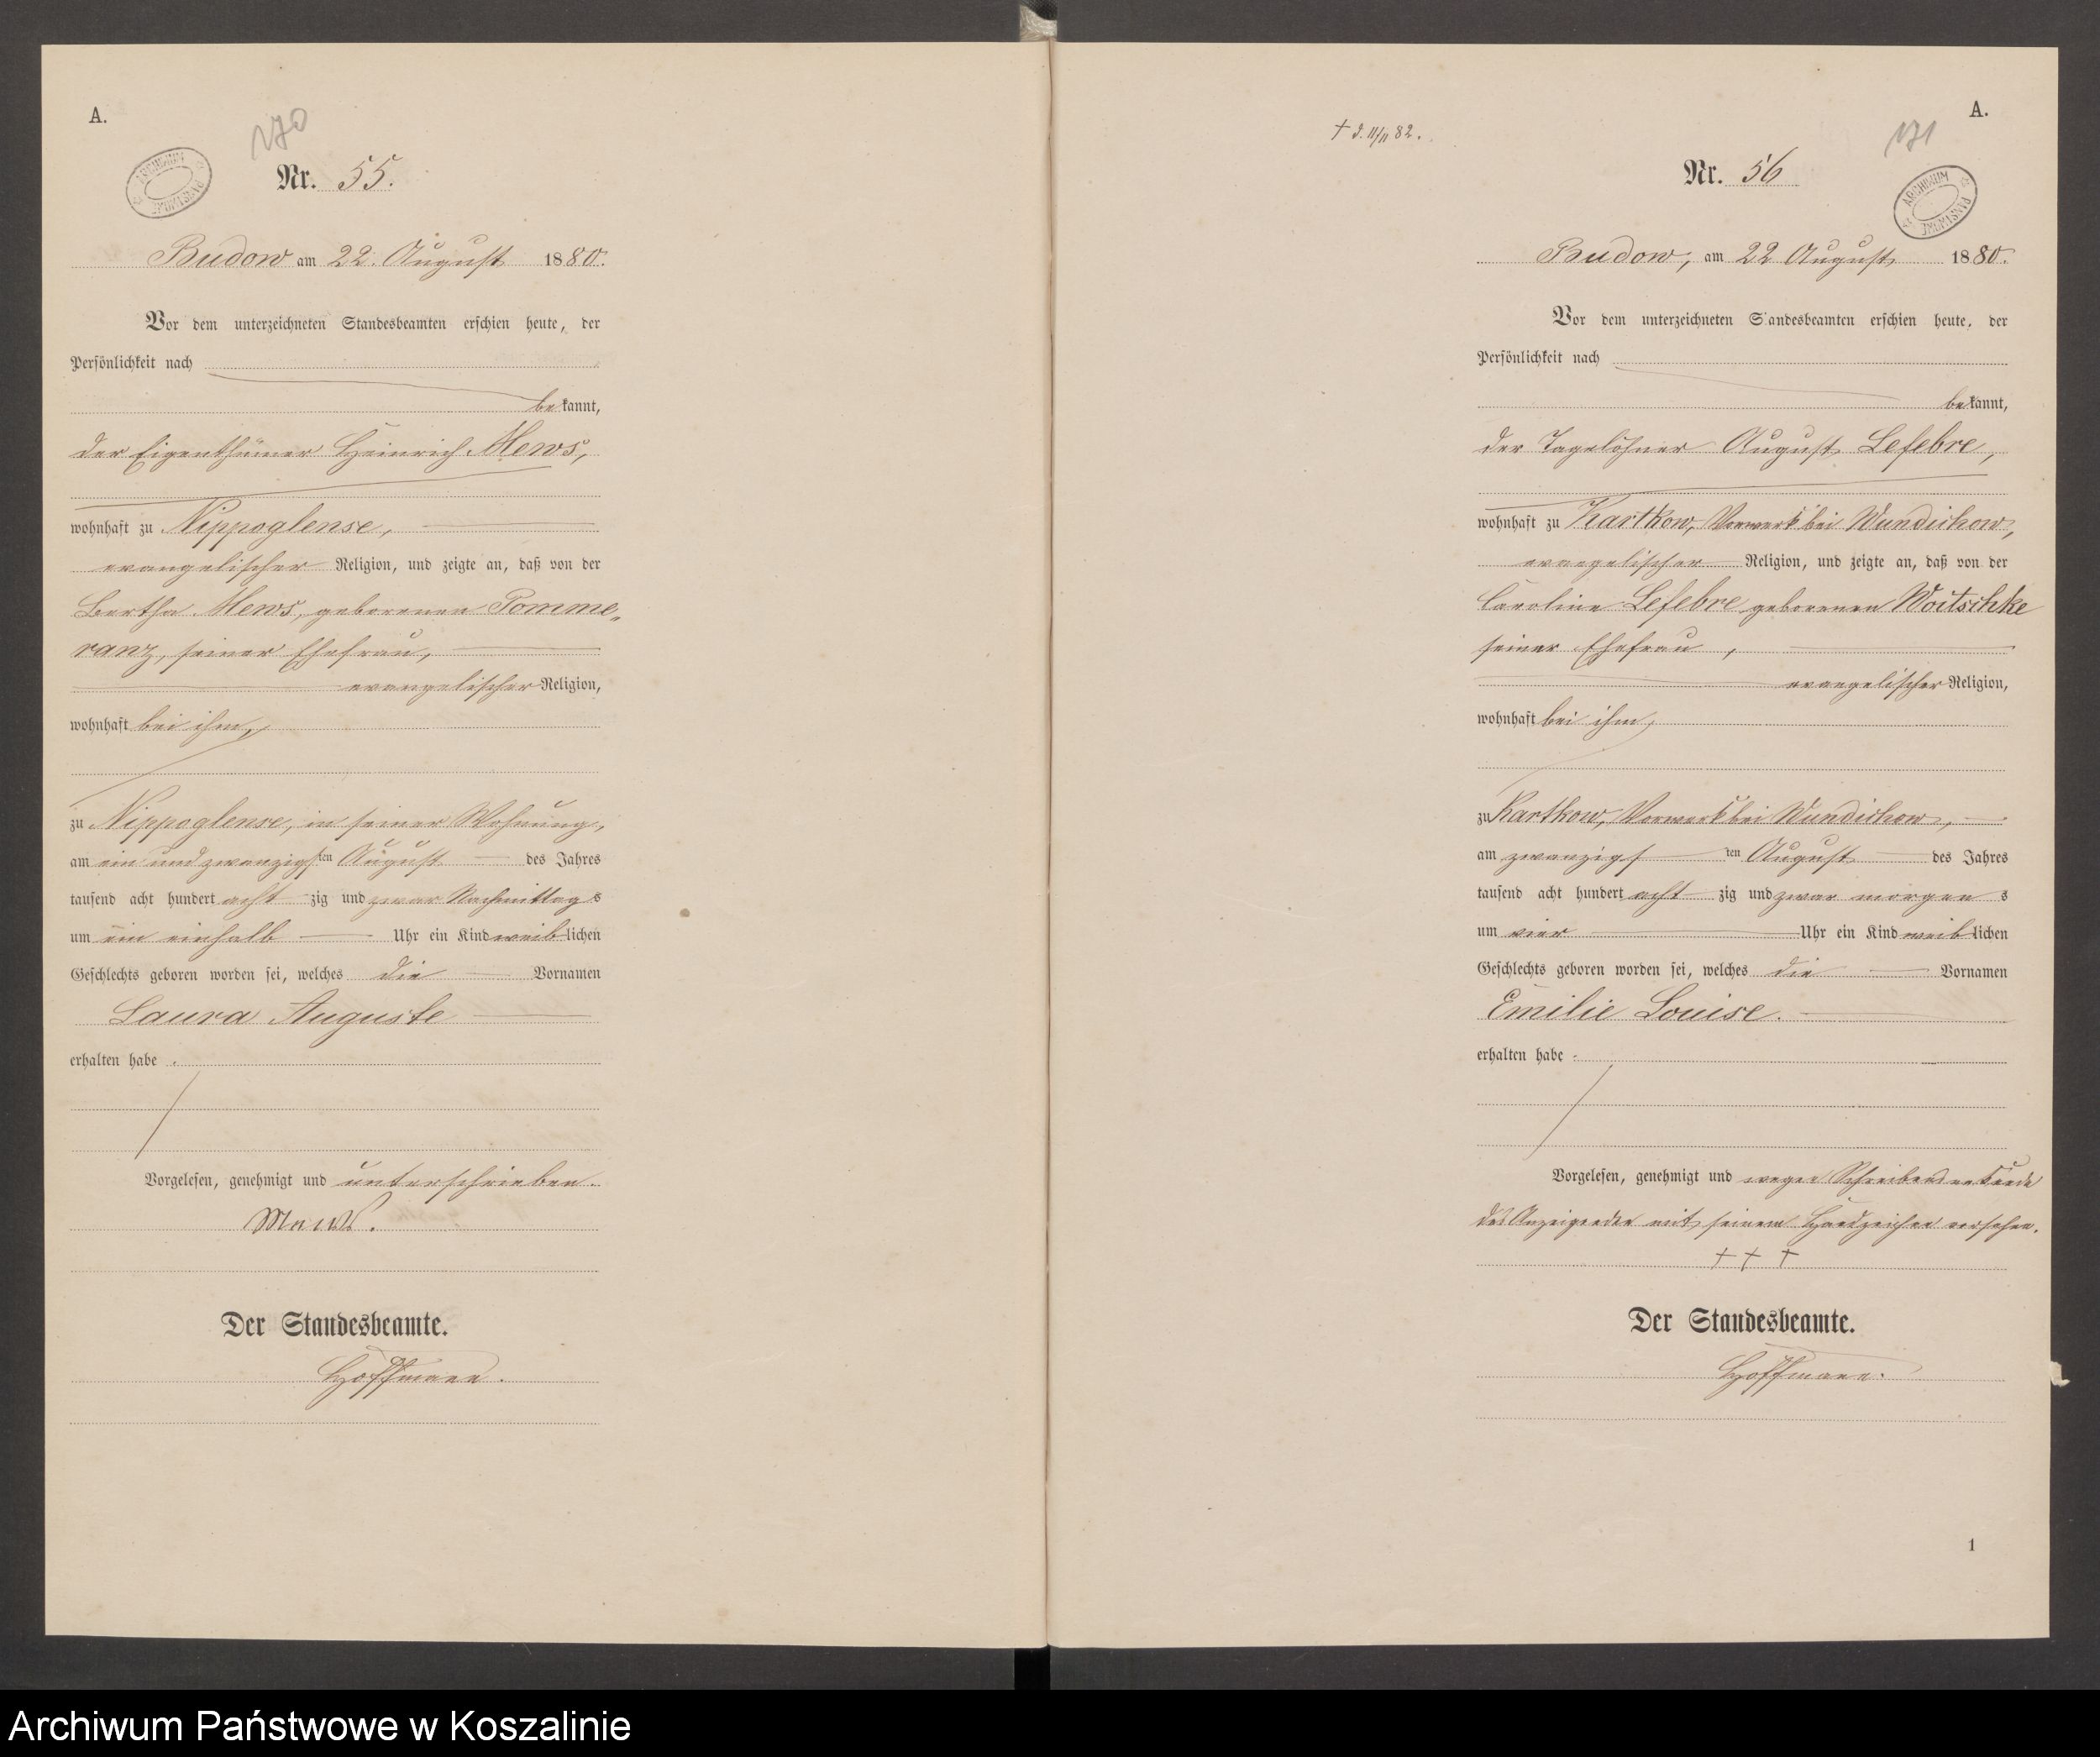 A.
170
ARCHIWUM PAŃSTWOWE
Nr. 55.
Budow am 22. August 1880.
Vor dem unterzeichneten Standesbeamten erschien heute, der
Persönlichkeit nach
bekannt,
der Eigenthümer Heinrich Mews,
wohnhaft zu Nippoglense,
evangelischer Religion, und zeigte an, daß von der
Bertha Mews, geborenen Pomme„
ranz, seiner Ehefrau,
evangelischer Religion,
wohnhaft bei ihm,
zu Nippoglense, in seiner Wohnung,
am ein und zwanzigsten August des Jahres
tausend acht hundert achtzig und zwar Nachmittags
um ein einhalb Uhr ein Kind weiblichen
Geschlechts geboren worden sei, welches die Vornamen
Laura Auguste
erhalten habe.
Vorgelesen, genehmigt und unterschrieben.
Mews.
Der Standesbeamte.
Hoffmann.
A.
171
† d. 11/11 82.
ARCHIWUM PAŃSTWOWE
Nr. 56
Budow, am 22 August 1880.
Vor dem unterzeichneten Standesbeamten erschien heute, der
Persönlichkeit nach
bekannt,
der Tagelöhner August Lefebre,
wohnhaft zu Kartkow, Vorwerk bei Wundichow,
evangelischer Religion, und zeigte an, daß von der
Caroline Lefebre geborenen Woitschke
seiner Ehefrau,
evangelischer Religion,
wohnhaft bei ihm,
zu Kartkow, Vorwerk bei Wundichow,
am zwanzigsten August des Jahres
tausend acht hundert achtzig und zwar morgens
um vier Uhr ein Kind weiblichen
Geschlechts geboren worden sei, welches die Vornamen
Emilie Louise.
erhalten habe.
Vorgelesen, genehmigt und wegen Schreibensunkunde
des Anzeigenden mit seinem Handzeichen versehen.
† † †
Der Standesbeamte.
Hoffmann.
1
Archiwum Państwowe w Koszalinie